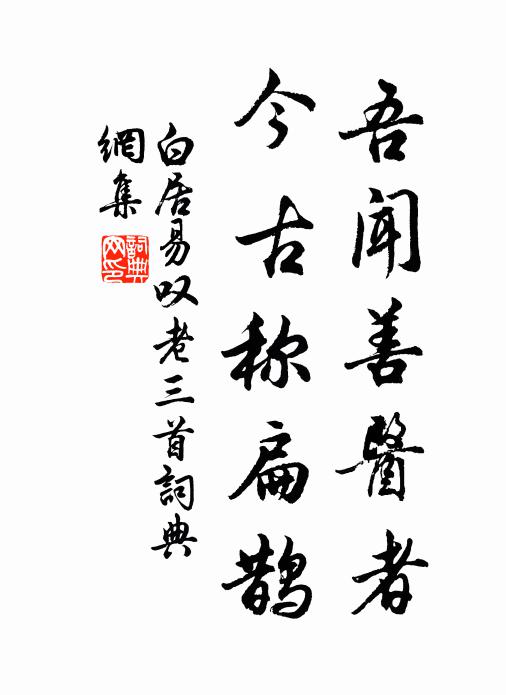 吾闻善醫者
今古称扁鹊
白居易叹老三首詞典
網集
詞典
网印